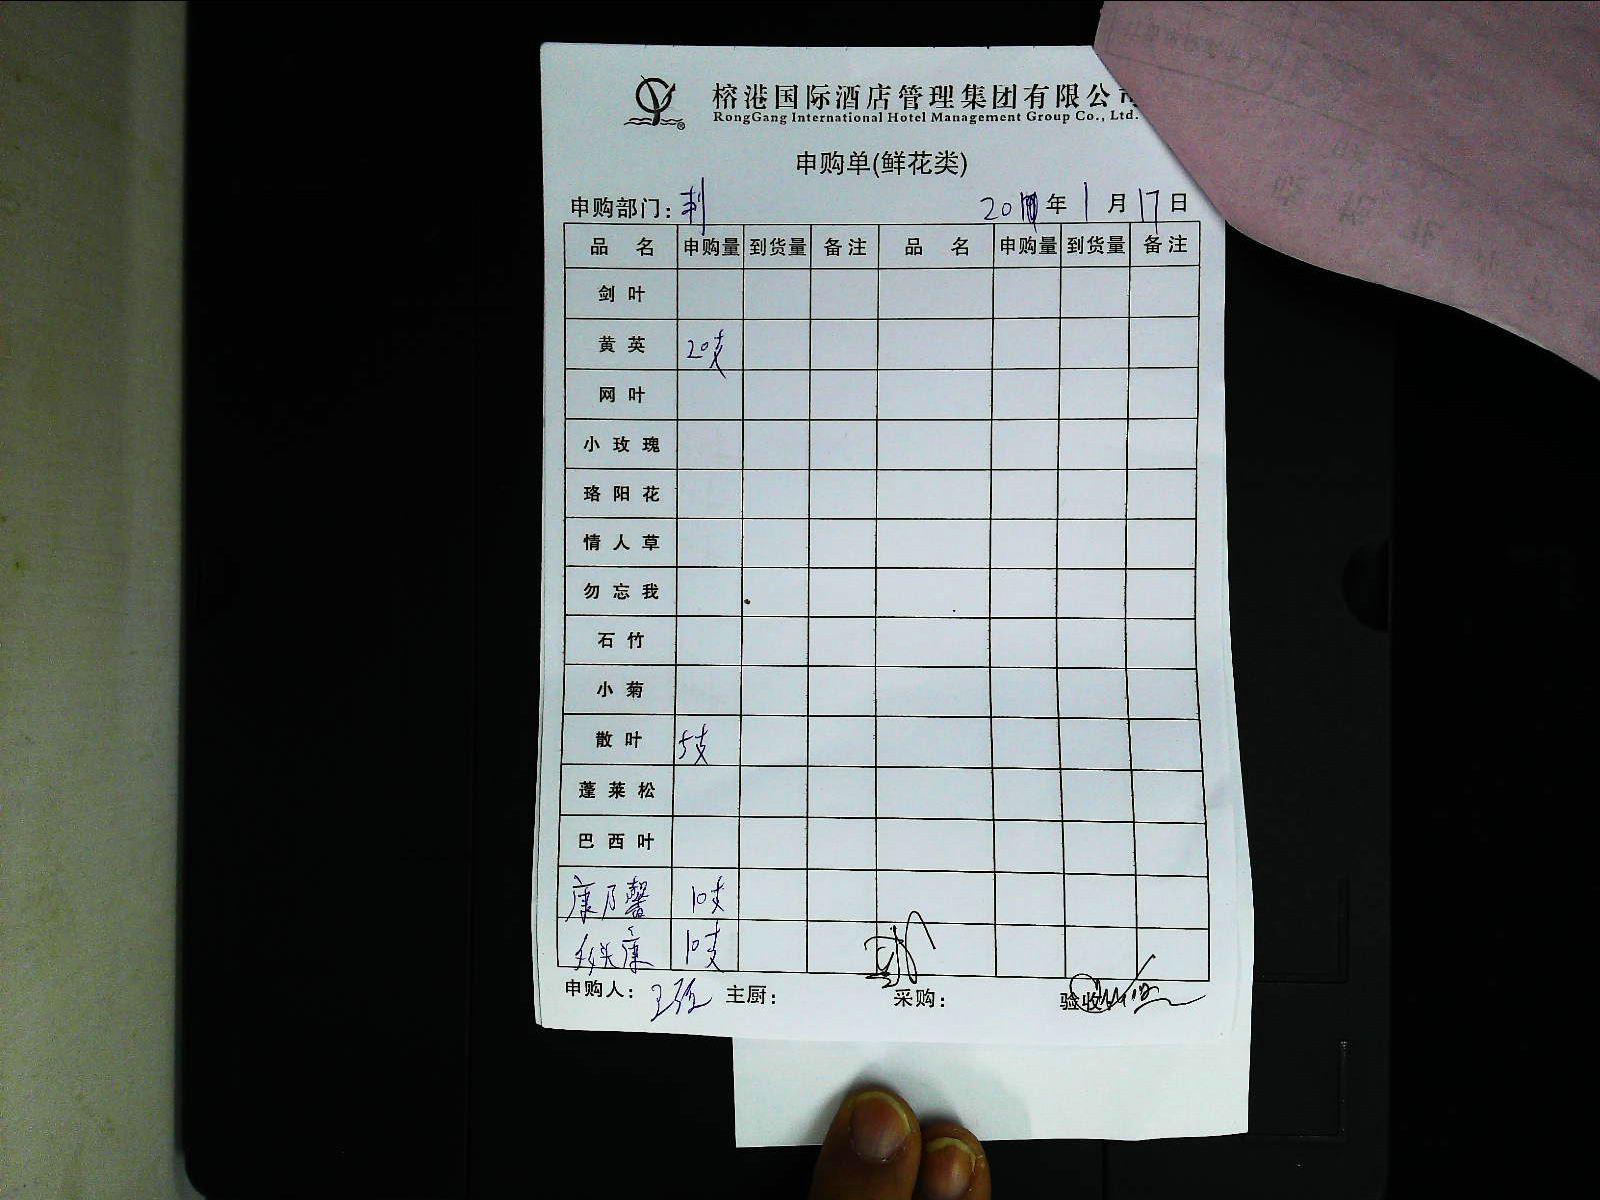 榕港国际酒店管理集团有限公司
RongGang International Hotel Management Group Co., Ltd.
申购单(鲜花类)
申购部门: 年 1 月 17 日
品 名 申购量 到货量 备注 品 名 申购量 到货量 备注
剑 叶
黄 英 20支
网 叶
小 玫 瑰
珞 阳 花
情 人 草
勿 忘 我
石 竹
小 菊
散 叶 5支
蓬 莱 松
巴 西 叶
康乃馨 10支
多头康 10支
申购人: 主厨: 采购: 验收